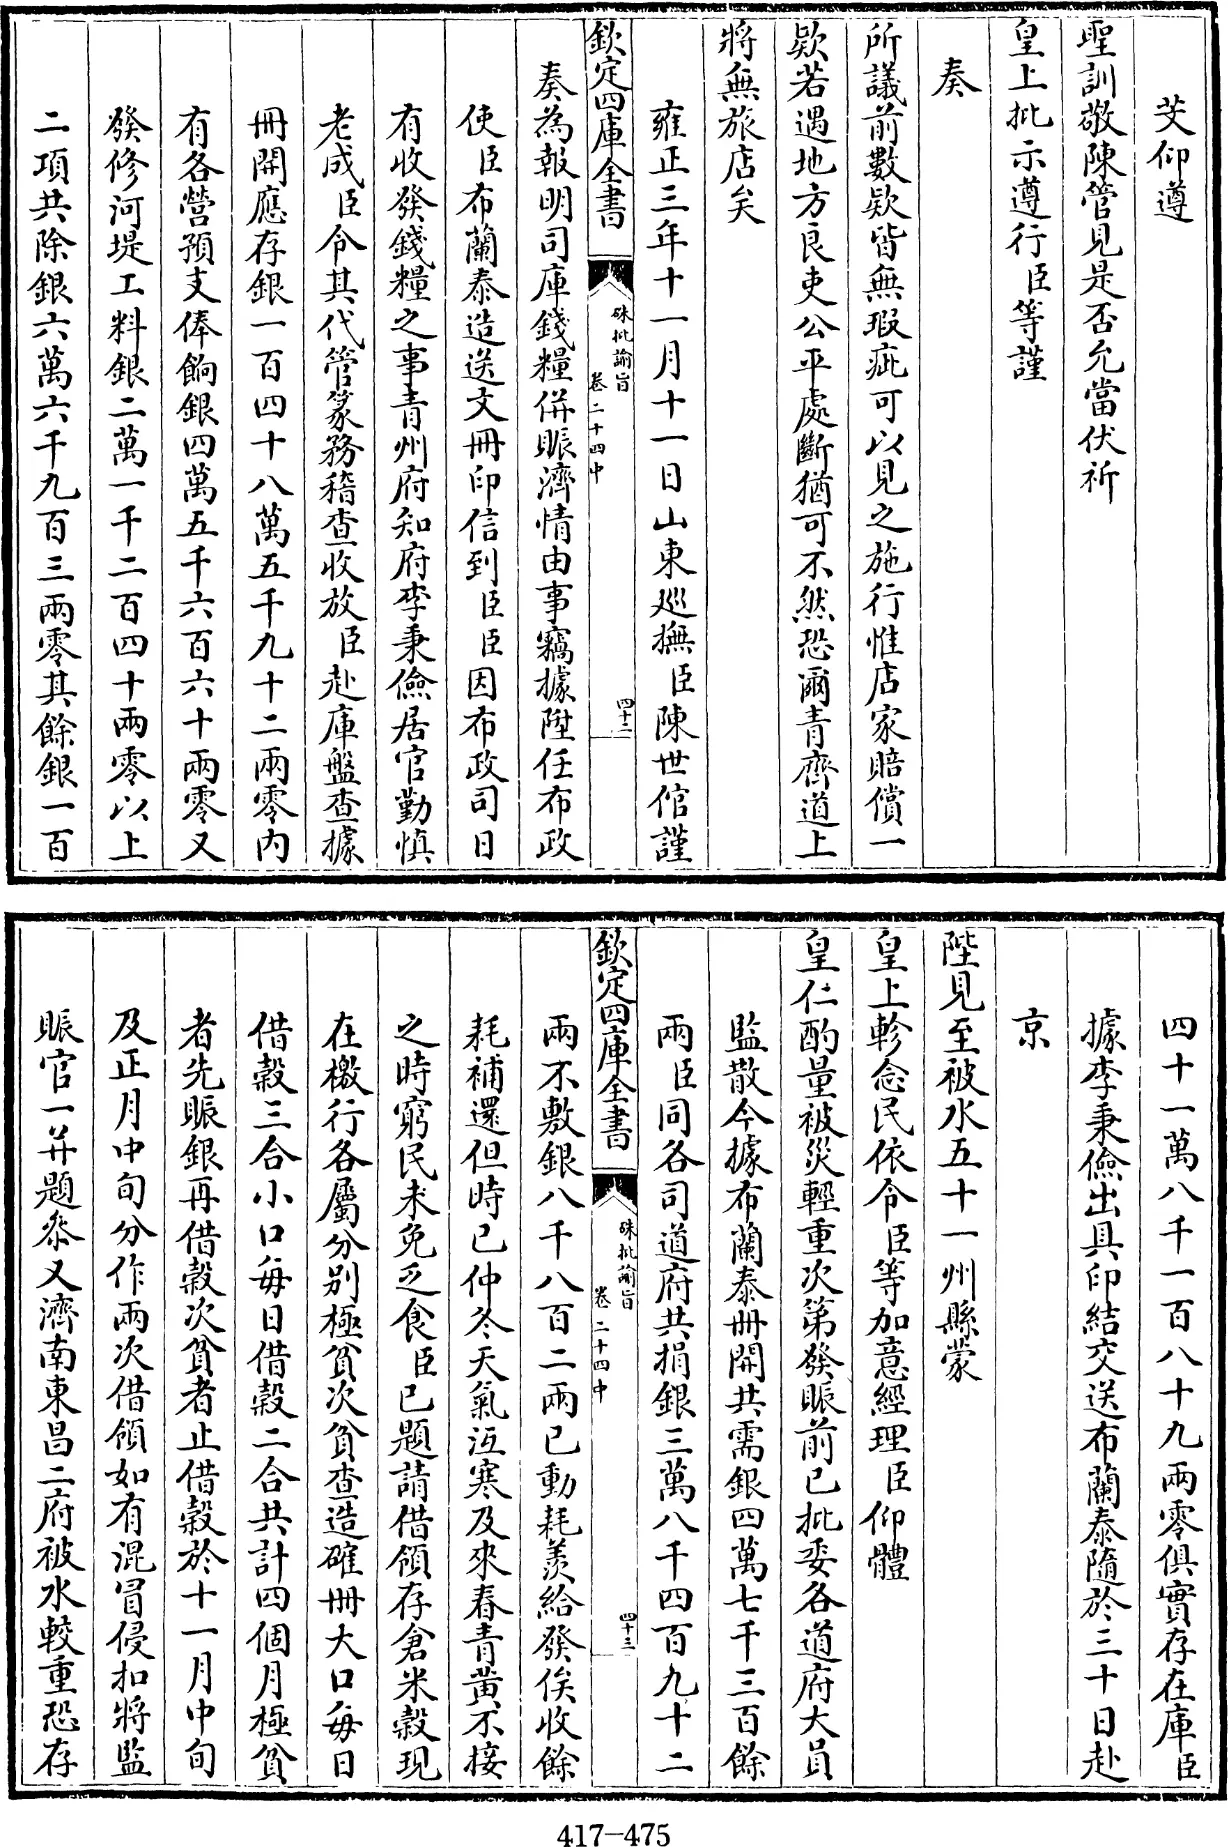 芟仰遵
聖訓敬陳管見是否允當伏祈
皇上批示遵行臣等謹
奏
所議前數欵皆無瑕疵可以見之施行惟店家賠償一
欵若遇地方良吏公平處斷猶可不然恐爾青齊道上
將無旅店矣
雍正三年十一月十一日山東巡撫臣陳世倌謹
欽定四庫全書
硃批諭旨
卷二十四中
四十二
奏為報明司庫錢糧併賑濟情由事竊據陞任布政
使臣布蘭泰造送文冊印信到臣臣因布政司日
有收發錢糧之事青州府知府李秉儉居官勤慎
老成臣令其代管篆務稽查收放臣赴庫盤查據
冊開應存銀一百四十八萬五千九十二兩零內
有各營預支俸餉銀四萬五千六百六十兩零又
發修河堤工料銀二萬一千二百四十兩零以上
二項共除銀六萬六千九百三兩零其餘銀一百
四十一萬八千一百八十九兩零俱實存在庫臣
據李秉儉出具印結交送布蘭泰隨於三十日赴
京
陛見至被水五十一州縣蒙
皇上軫念民依令臣等加意經理臣仰體
皇仁酌量被災輕重次第發賑前已批委各道府大員
監散今據布蘭泰冊開共需銀四萬七千三百餘
兩臣同各司道府共捐銀三萬八千四百九十二
欽定四庫全書
硃批諭旨
卷二十四中
四十三
兩不敷銀八千八百二兩已動耗羡給發俟收餘
耗補還但時已仲冬天氣沍寒及來春青黃不接
之時窮民未免乏食臣已題請借領存倉米穀現
在檄行各屬分别極貧次貧查造確冊大口每日
借穀三合小口每日借穀二合共計四個月極貧
者先賑銀再借穀次貧者止借穀於十一月中旬
及正月中旬分作兩次借領如有混冒侵扣將監
賑官一并題叅又濟南東昌二府被水較重恐存
417-475